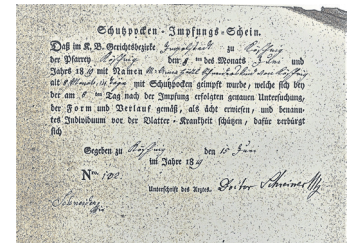 Schutzpocken-Impfungs-Schein.
Daß im K. B. Gerichtsbezirke Ingolstadt zu Kösching
der Pfarrey Kösching den 8 ten des Monats Juni und
Jahrs 1819 mit Namen
alt 8 Monate, Tage mit Schutzpocken geimpft wurde, welche sich bey
der am 8 ten Tag nach der Impfung erfolgten genauen Untersuchung,
der Form und Verlauf gemäß, als ächt erwiesen, und benann-
tes Individuum vor der Blatter-Krankheit schützen, dafür verbürgt
sich
Gegeben zu Kösching den 15 Juni
im Jahre 1819
Nro. 102.
Unterschrift des Arztes. Doctor Schreiner